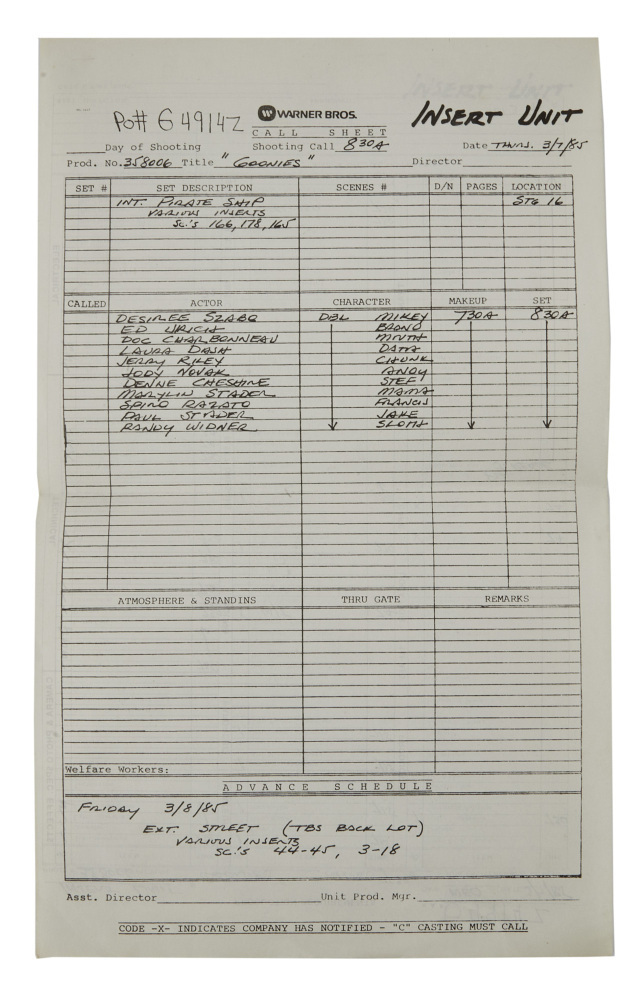 INSERT UNIT
PO# G 49147
WARNER BROS.
CALL SHEET
Day of Shooting Shooting Call 830A Date THURS. 3/7/85
Prod. No. 358006 Title "GOONIES" Director
SET # SET DESCRIPTION SCENES # D/N PAGES LOCATION
INT. PIRATE SHIP STG 16
VARIOUS INSERTS
SC.'S 166, 178, 165
CALLED ACTOR CHARACTER MAKEUP SET
DESIREE SZABO DBL MIKEY 730A 830A
ED URICH BRAND
DOC CHARBONNEAU MOUTH
LAURA DASH DATA
JERRY RILEY CHUNK
JODY NOVAK ANDY
DENNE CHESHIRE STEF
MARYLIN STADER MAMA
SPIRO RAZATO FRANCIS
PAUL STADER JAKE
RANDY WIDNER SLOTH
ATMOSPHERE & STANDINS THRU GATE REMARKS
Welfare Workers:
ADVANCE SCHEDULE
FRIDAY 3/8/85
EXT. STREET (TBS BACK LOT)
VARIOUS INSERTS
SC.'S 44-45, 3-18
Asst. Director Unit Prod. Mgr.
CODE -X- INDICATES COMPANY HAS NOTIFIED - "C" CASTING MUST CALL